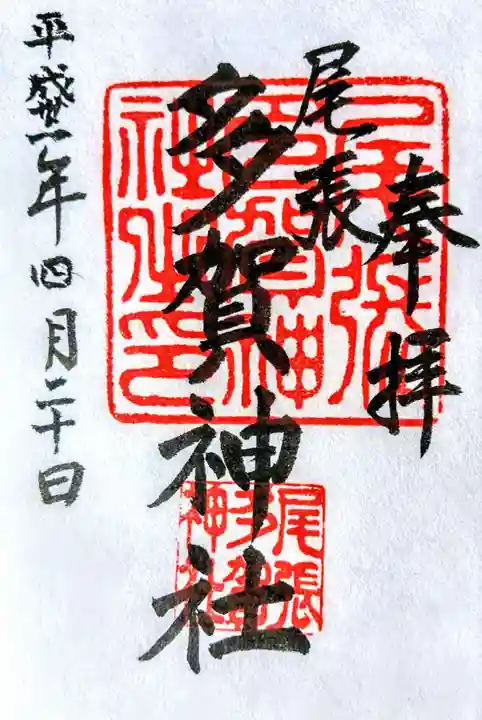 奉拝
尾張
多賀神社
平成卅一年四月二十日
尾張
多賀神
社之印
尾張
多賀
神社